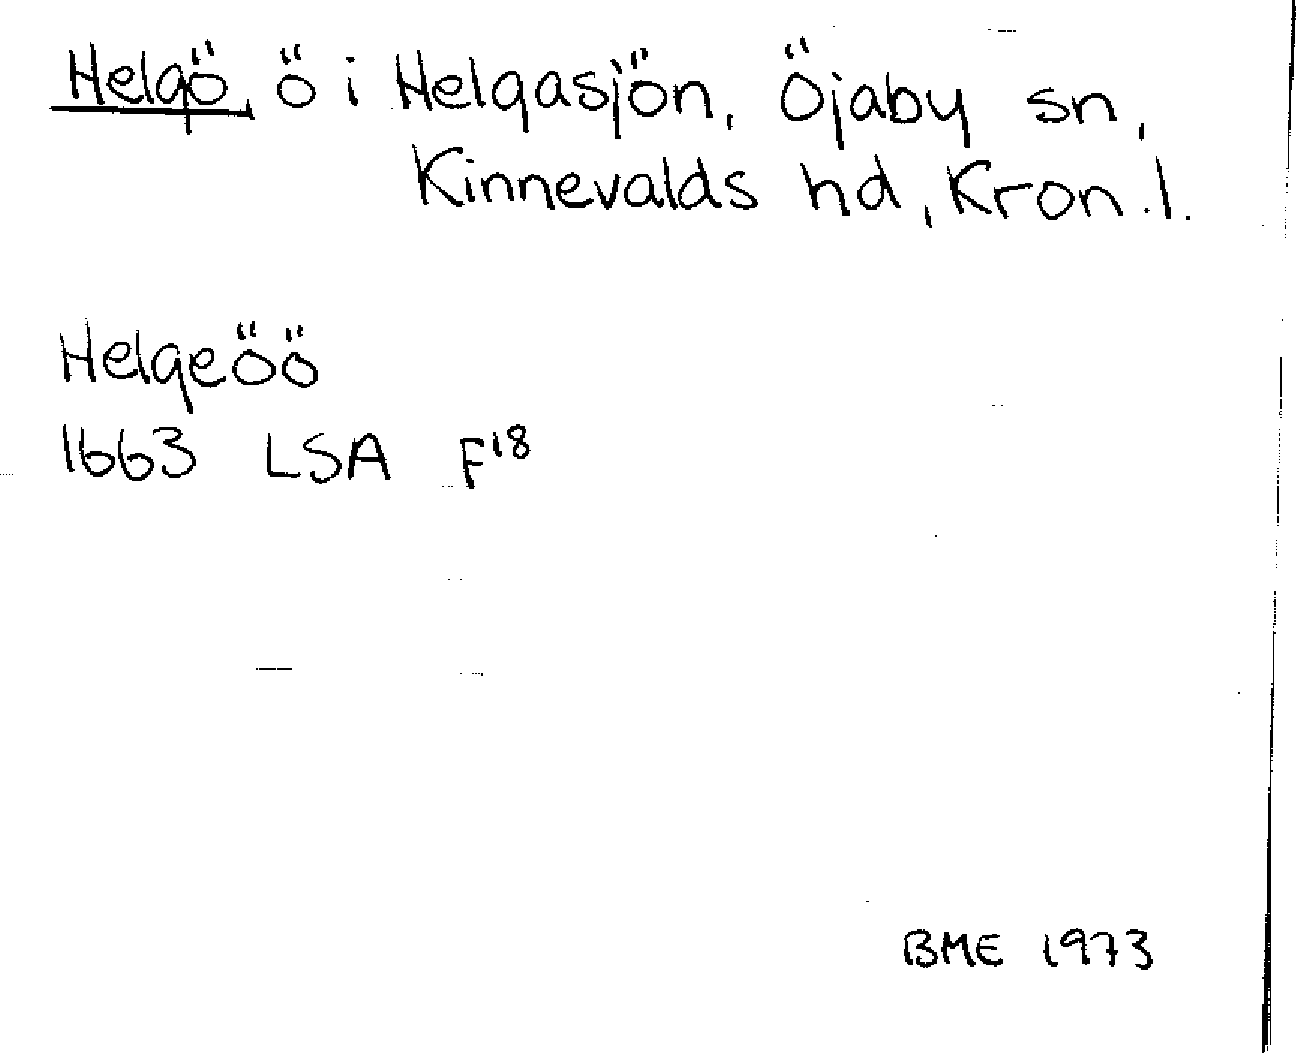 Helgö, ö i Helgasjön, Öjaby sn,
Kinnevalds hd, Kron.l.
Helgeöö
1663 LSA F18
BME 1973